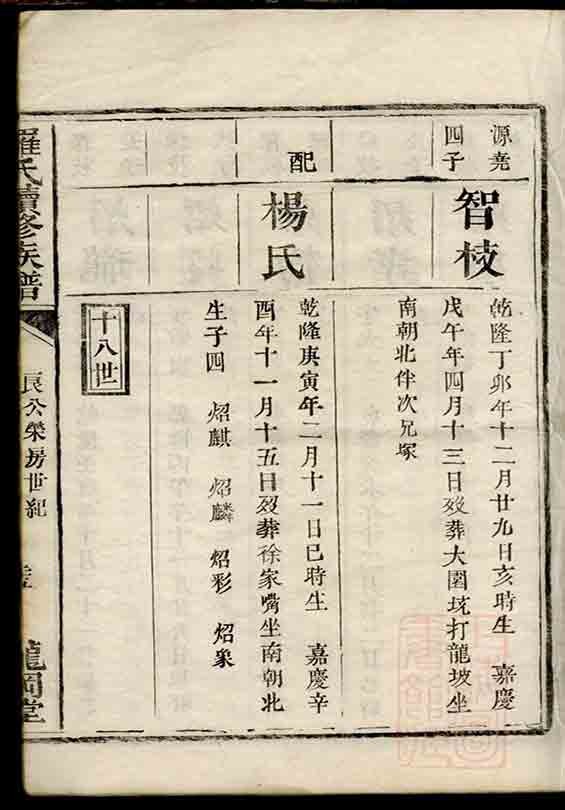 源堯
四子
智枝
乾隆丁卯年十二月廿九日亥時生 嘉慶
戊午年四月十三日歿葬大園坑打龍坡坐
南朝北伴次兄塚
配
楊氏
乾隆庚寅年二月十一日巳時生 嘉慶辛
酉年十一月十五日歿葬徐家嘴坐南朝北
生子四 炤麒 炤麟 炤彩 炤象
十八世
羅氏續修族譜
良公榮房世紀
龍岡堂